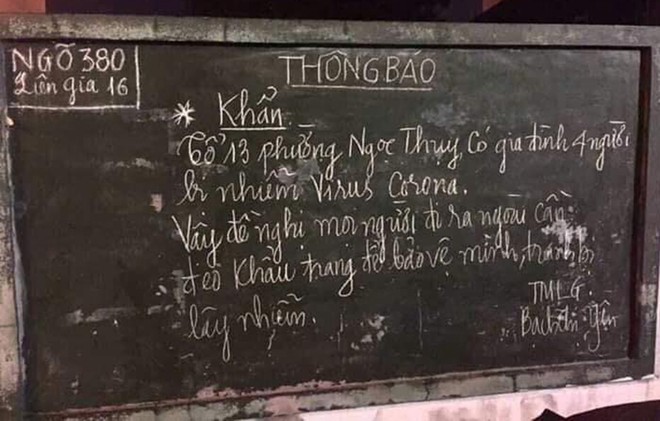 NGÕ 380
Liên gia 16
THÔNG BÁO
* Khẩn.
Tổ 13 phường Ngọc Thụy, Có gia đình 4 người
bị nhiễm Virus Corona.
Vậy đề nghị mọi người đi ra ngoài cần
đeo Khẩu trang để bảo vệ mình, tránh bị
lây nhiễm.
TMLG.
Bạch Yến